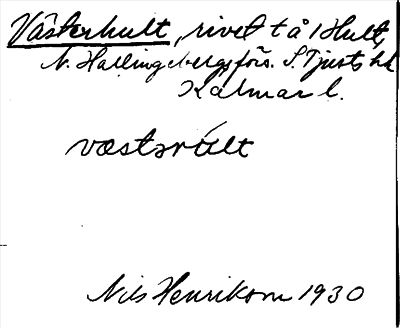 Västerhult, rivet t å 1 Hult,
N. Hallingebergs förs. S. Tjusts hd
Kalmar l.
væstərúlt
Nils Henrikson 1930